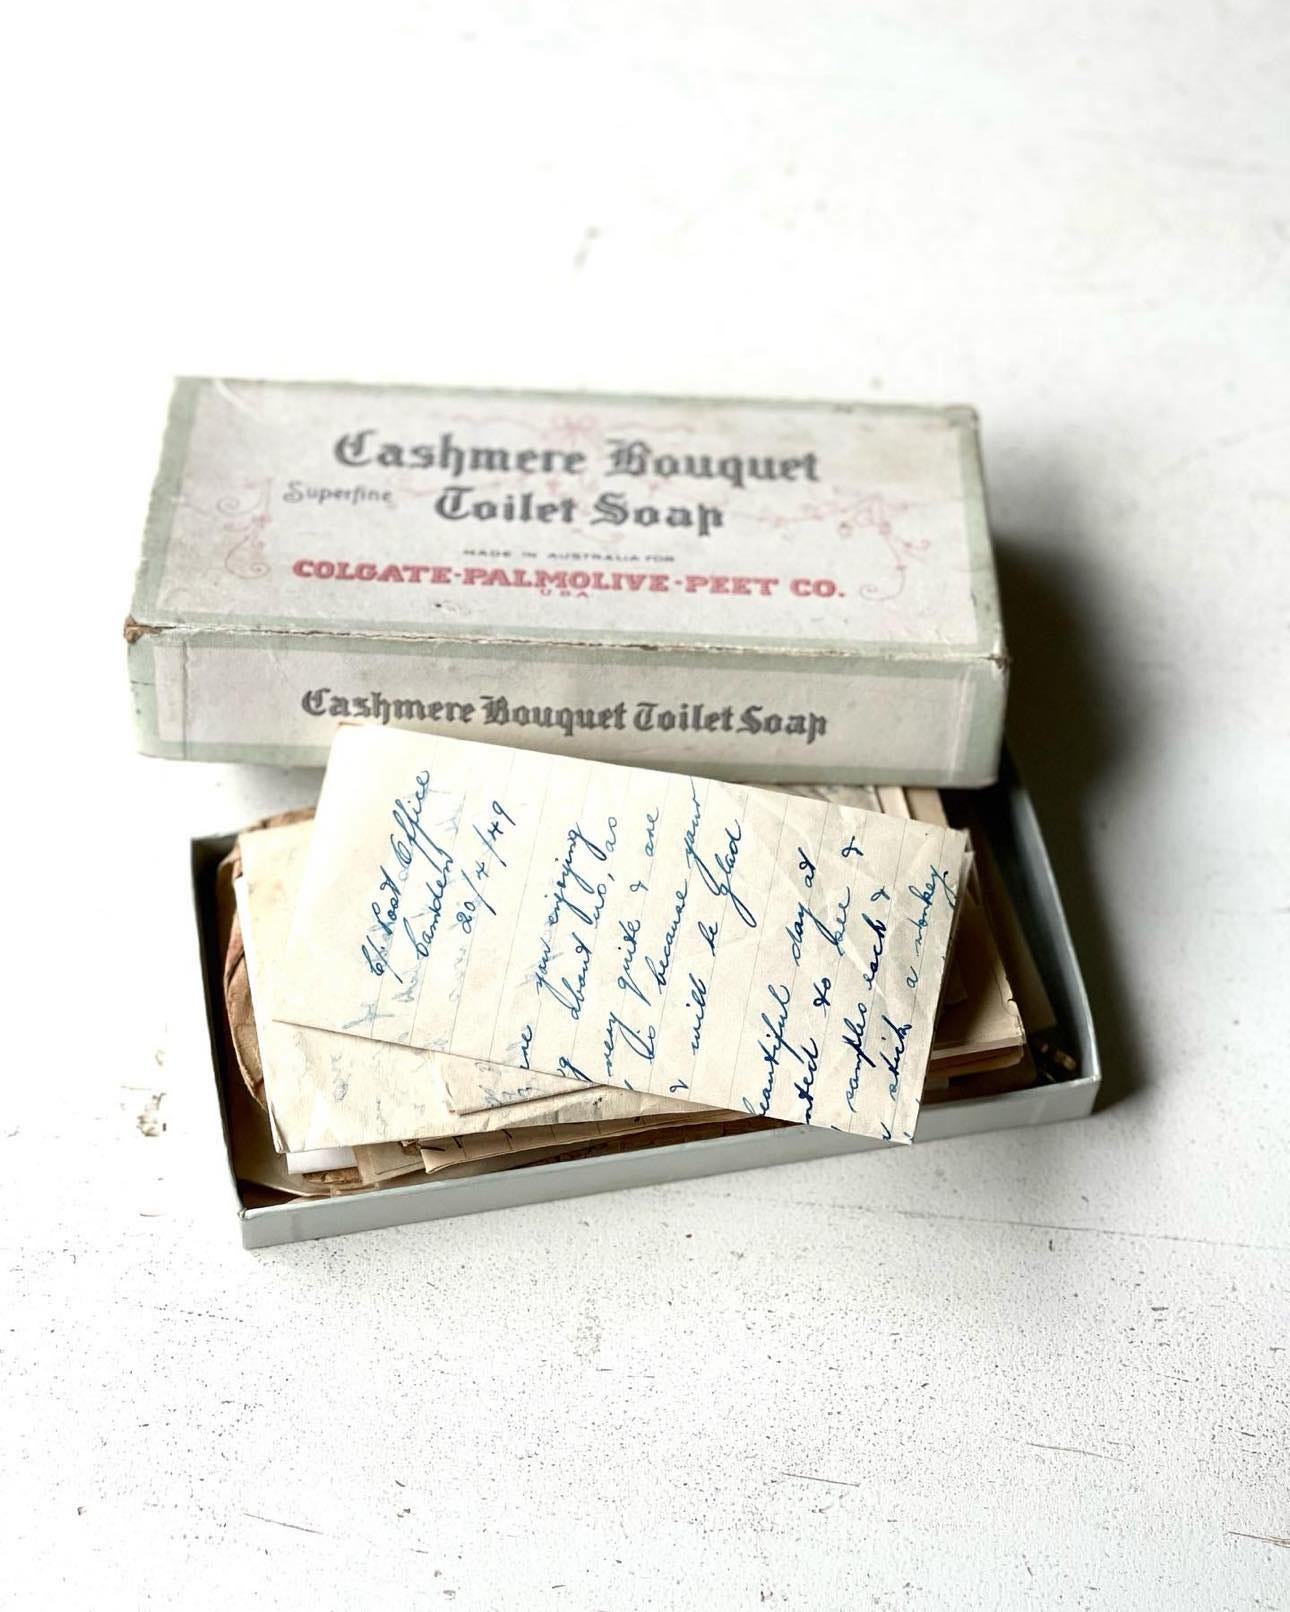 Cashmere Bouquet
Superfine
Toilet Soap
MADE IN AUSTRALIA FOR
COLGATE-PALMOLIVE-PEET CO.
USA
Cashmere Bouquet Toilet Soap
Post Office
Camden
20/4/49
you enjoying
about us, as
very quite & are
is because your
& will be glad
beautiful day at
to see &
samples each &
stick a monkey